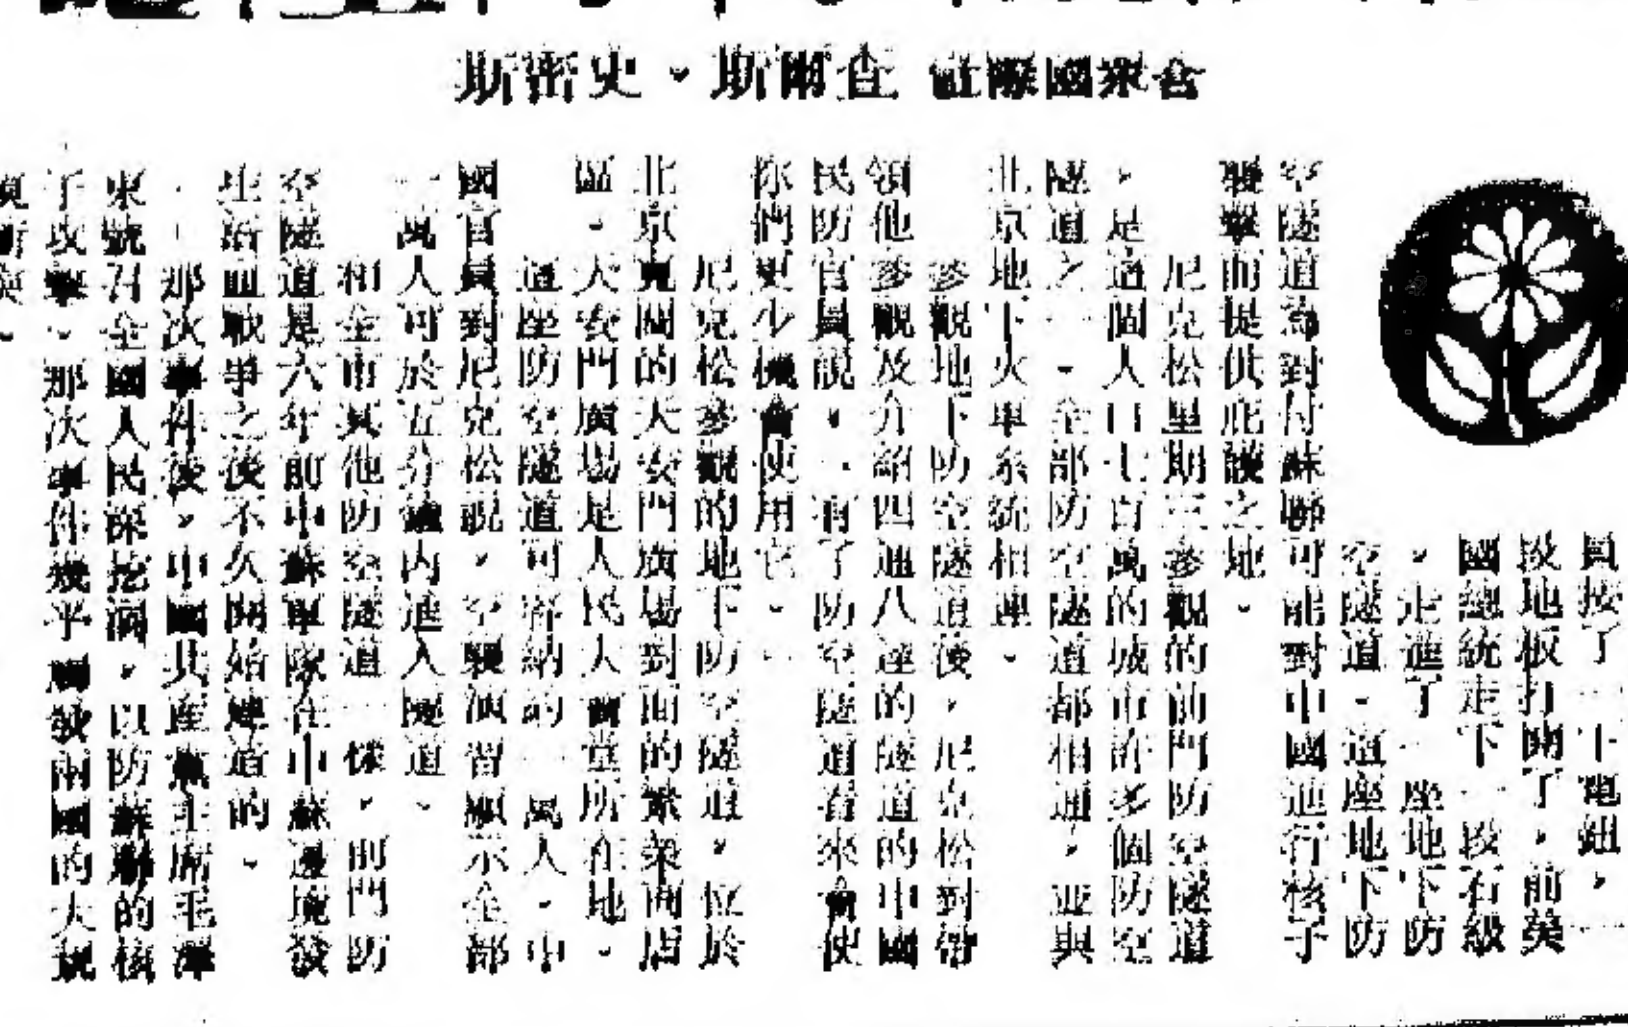 合眾國際社 查爾斯・史密斯
員按了一下電鈕，一
段地板打開了，前美
國總統走下一段石級
，走進了一座地下防
空隧道。這座地下防
空隧道為對付蘇聯可能對中國進行核子
襲擊而提供庇護之地。
尼克松星期三參觀的前門防空隧道
，是這個人口七百萬的城市許多個防空
隧道之一。全部防空隧道都相通，並與
北京地下火車系統相連。
參觀地下防空隧道後，尼克松對帶
領他參觀及介紹四通八達的隧道的中國
民防官員說，「有了防空隧道看來會使
你們更少機會使用它。」
尼克松參觀的地下防空隧道，位於
北京克關的天安門廣場對面的繁榮商店
區。天安門廣場是人民大會堂所在地。
這座防空隧道可容納約一萬人。中
國官員對尼克松說，空襲演習顯示全部
一萬人可於五分鐘內進入隧道。
和全市其他防空隧道一樣，前門防
空隧道是六年前中蘇軍隊在中蘇邊境發
生浴血戰爭之後不久開始建造的。
那次事件後，中國共產黨主席毛澤
東號召全國人民深挖洞，以防蘇聯的核
子攻擊。那次事件幾乎觸發兩國的大規
模衝突。